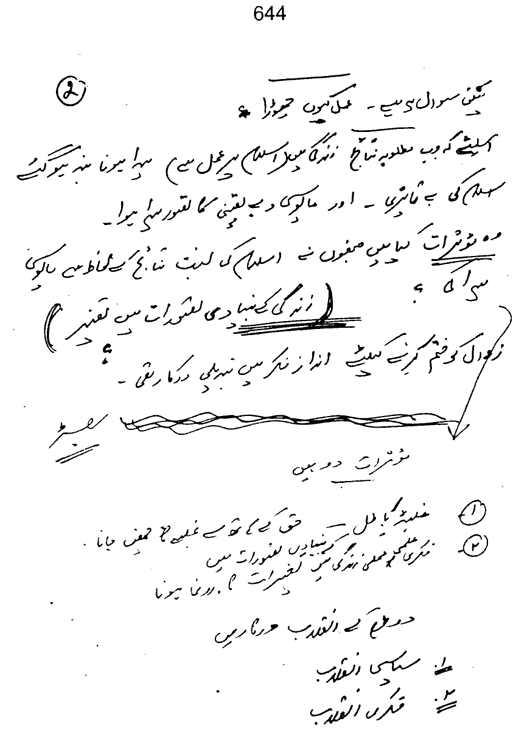 644
2
لیکن سوال یہ ہے ۔ عمل کیوں چھوڑا ؟
اسلئے کہ جب مطلوبہ نتائج زندگی میں (اسلام پر عمل سے) پیدا ہونا بند ہو گئے
اسلام کی بے تاثیری ۔ اور مایوسی و بے یقینی کا تصور پیدا ہوا ۔
وہ مؤثرات کیا ہیں جنہوں نے اسلام کی نسبت نتائج کے لحاظ سے مایوسی
پیدا کی ؟
(زندگی کے بنیادی تصورات میں تغیر)
زوال کو ختم کرنے کیلئے انداز فکر میں تبدیلی درکار تھی ۔
؟
مؤثرات دو ہیں
۱ غلبۂ باطل ـ حق کے ہاتھ سے غلبے کا چھن جانا ۔
۲ فکری علمی و عملی زندگی کے بنیادی تصورات میں
تغیرات کا رونما ہونا
دو طرح کے انقلاب درکار ہیں
۱۔ سیاسی انقلاب
۲۔ فکری انقلاب